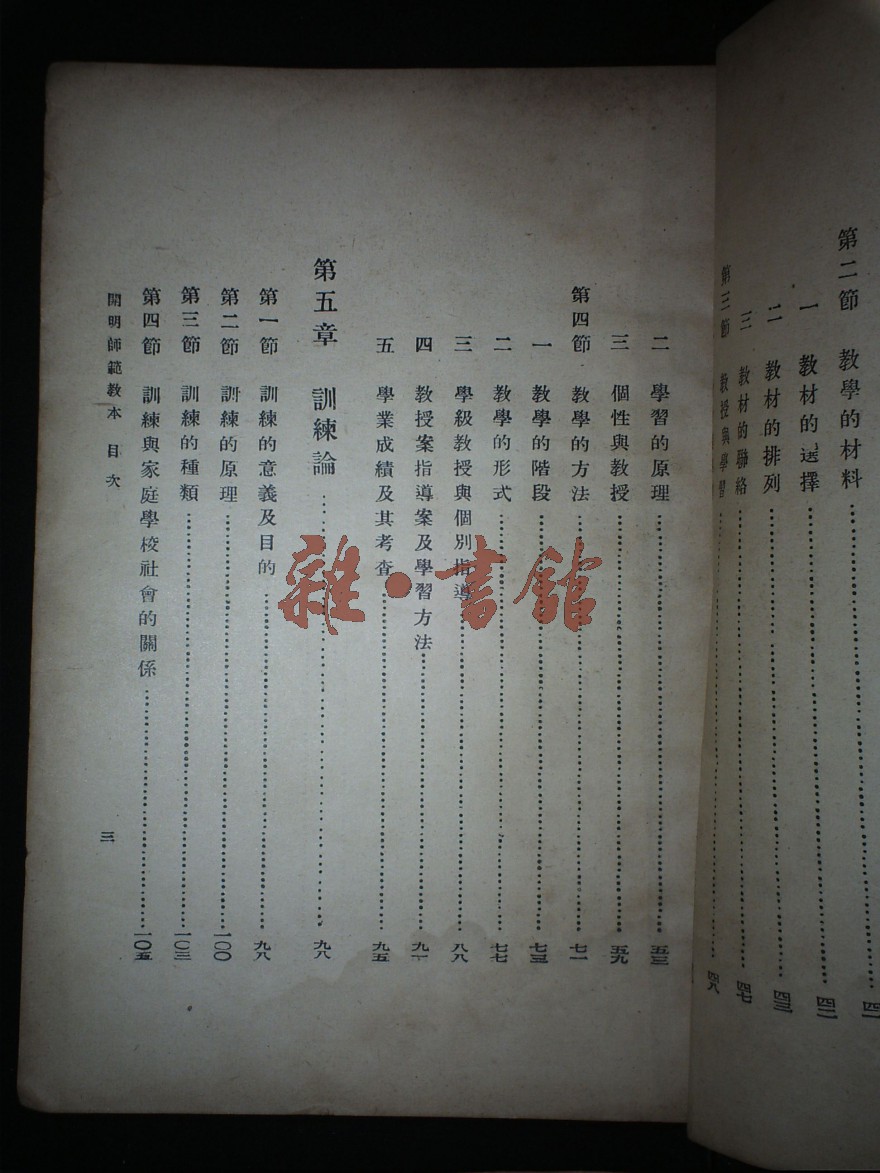 第二節 教學的材料……四一
一 教材的选擇……四二
二 教材的排列……四三
三 教材的聯絡……四七
第三節 教授與學習……四八
二 學習的原理……五三
三 個性與教授……五九
第四節 教學的方法……七一
一 教學的階段……七三
二 教學的形式……七七
三 學級教授與個別指導……八八
四 教授案指導案及學習方法……九一
五 學業成績及其考查……九五
第五章 訓練論……九八
第一節 訓練的意義及目的……九八
第二節 訓練的原理……一〇〇
第三節 訓練的種類……一〇三
第四節 訓練與家庭學校社會的關係……一〇五
開明師範教本 目次
三
雜·書館